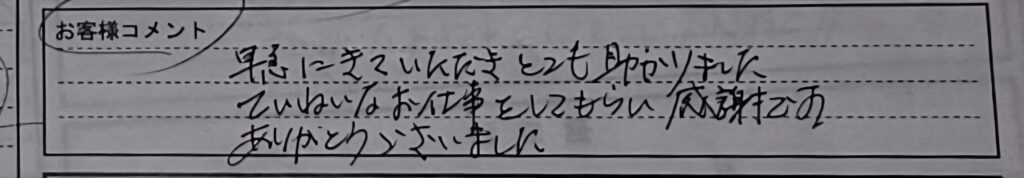 お客様コメント
早急にきていただき とても助かりました
ていねいなお仕事をしてもらい 感謝です
ありがとうございました